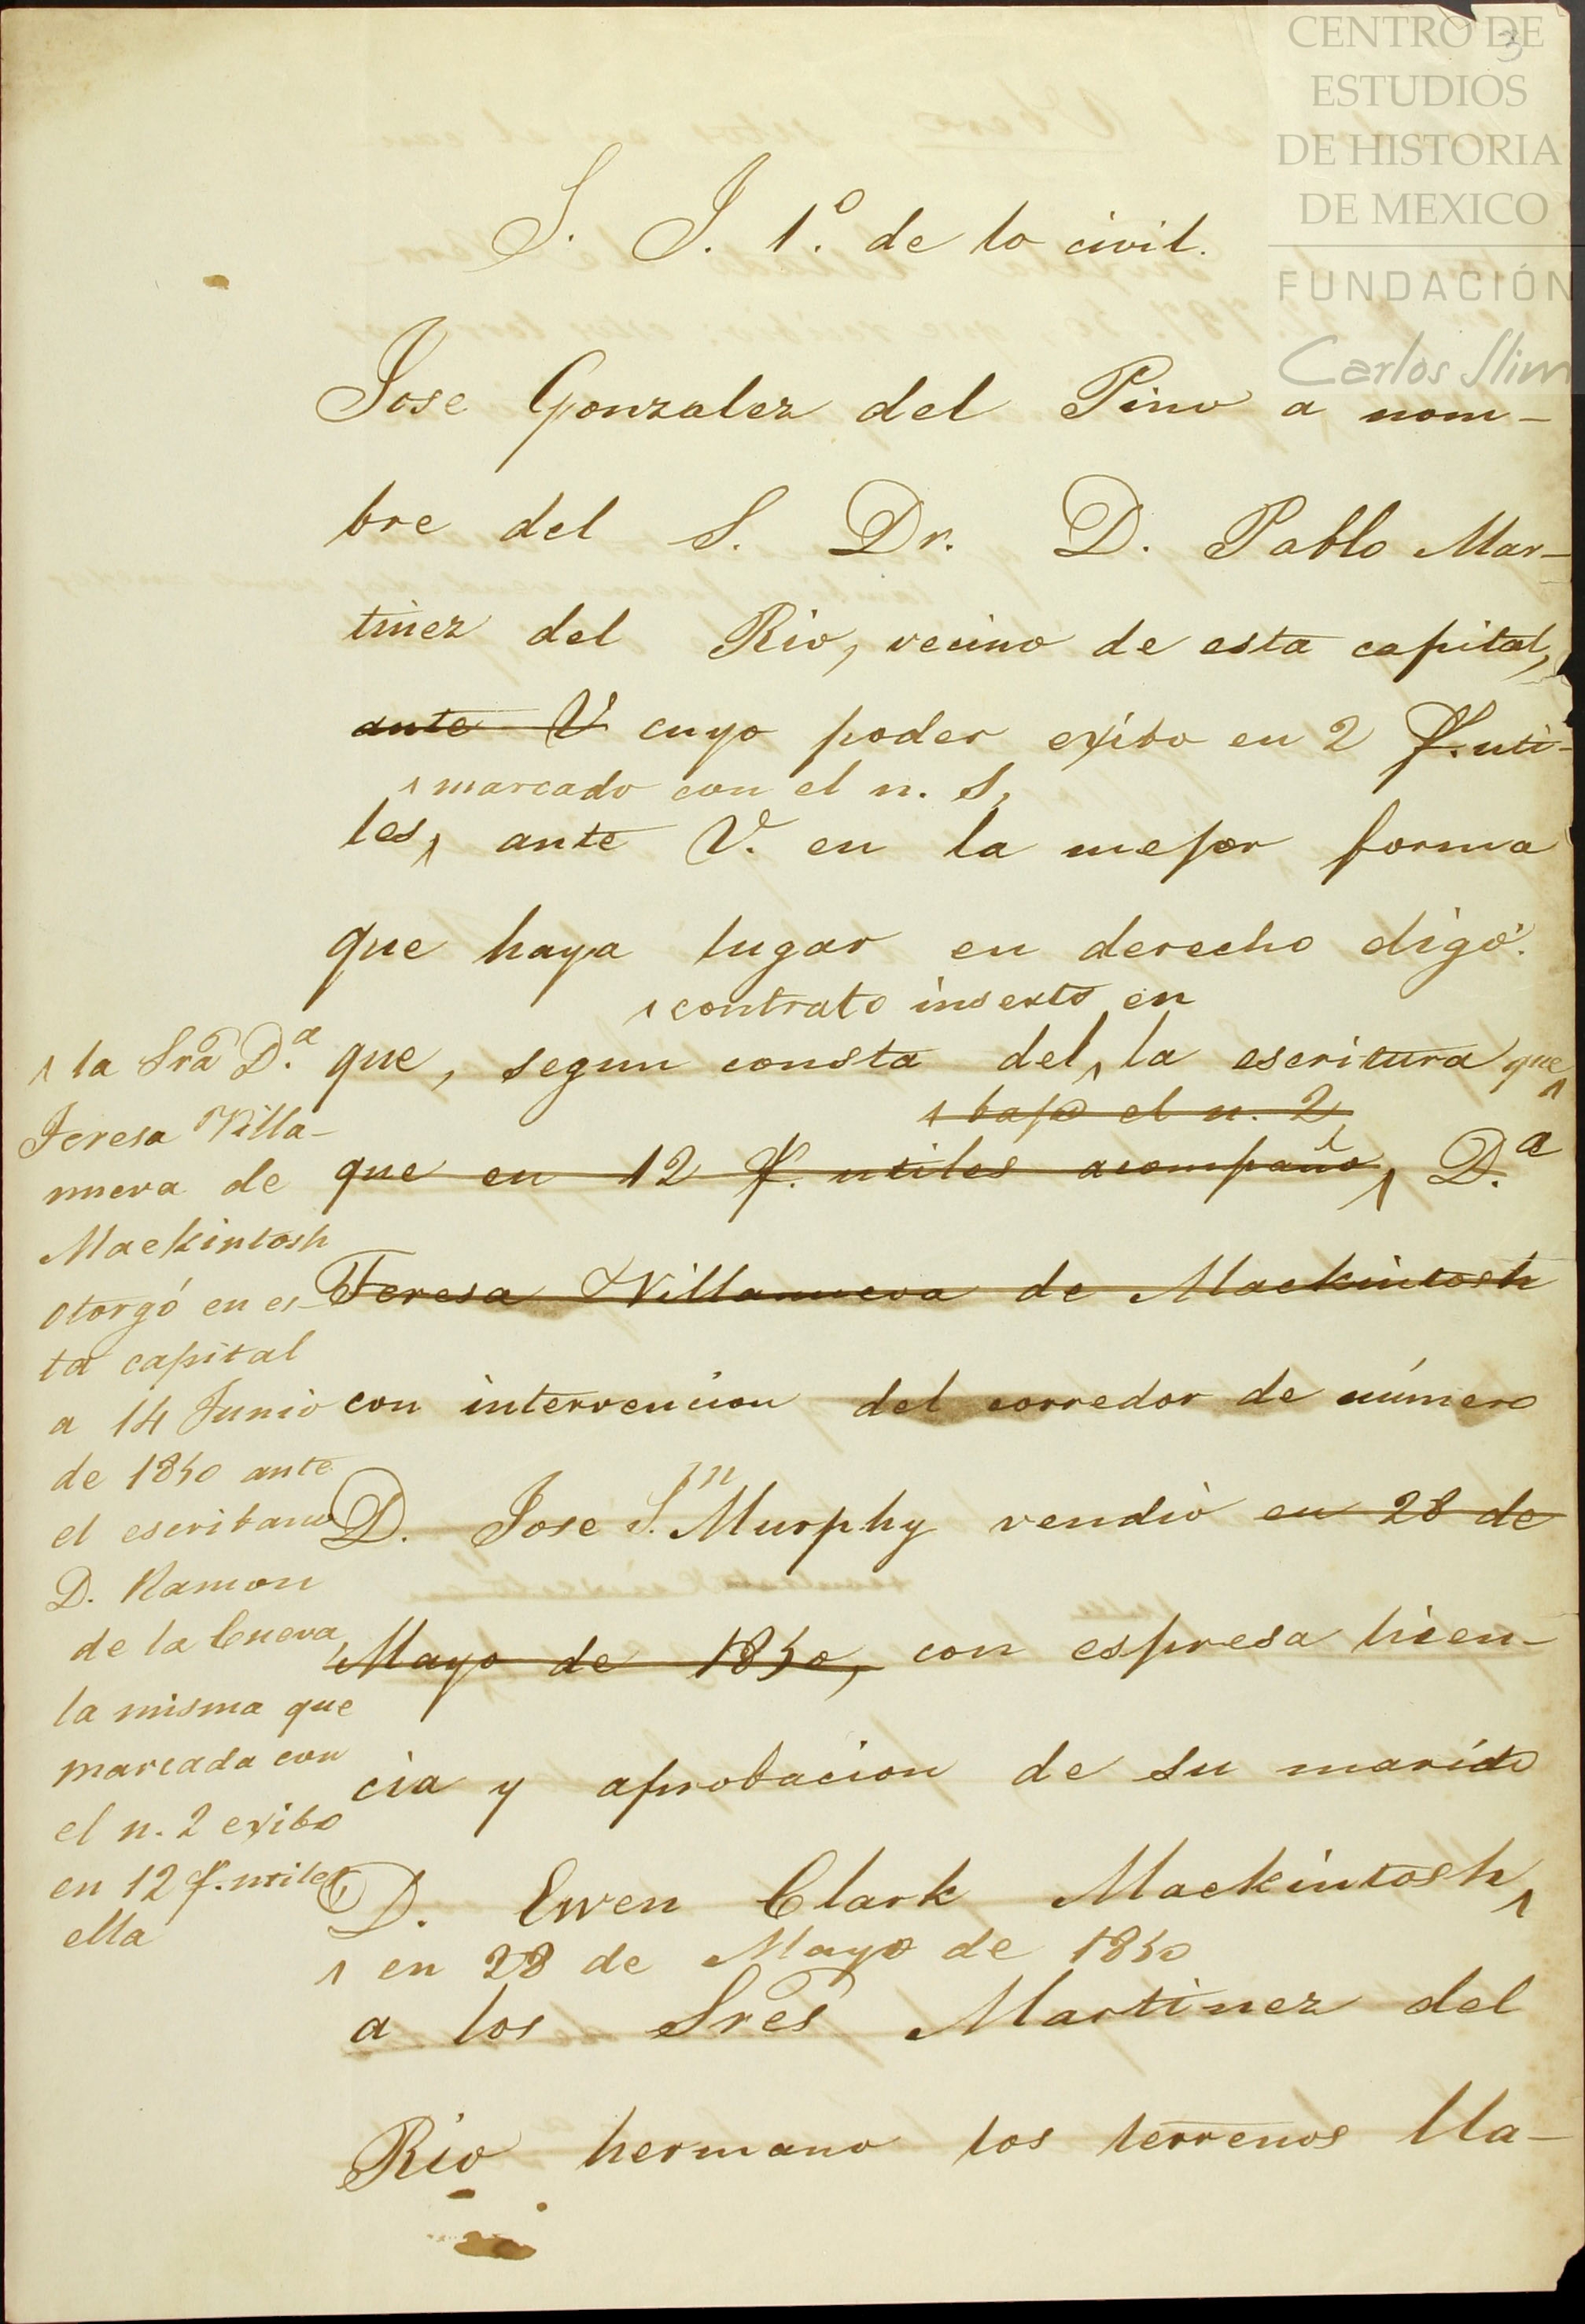 CENTRO DE
ESTUDIOS
DE HISTORIA
DE MEXICO
FUNDACIÓN
Carlos Slim
3
S. J. 1.º de lo civil.
Jose Gonzalez del Pino a nom-
bre del S. Dr. D. Pablo Mar-
tinez del Rio, vecino de esta capital,
ante V cuyo poder exibo en 2 f. uti-
marcado con el n. 1,
les, ante V. en la mejor forma
que haya lugar en derecho digo:
contrato inserto en
que, segun consta del, la escritura que
bajo el n. 2,
que en 12 f. utiles acompaño, D.ª
Teresa Villanueva de Mackintosh
con intervencion del corredor de número
D. Jose S.n Murphy vendió en 28 de
Mayo de 1850, con espresa licen-
cia y aprobacion de su marido
D. Ewen Clark Mackintosh,
en 28 de Mayo de 1850
a los Sres Martinez del
Rio hermano los terrenos lla-
la Sra D.ª
Teresa Villa-
nueva de
Mackintosh
otorgó en es-
ta capital
a 14 Junio
de 1850 ante
el escribano
D. Ramon
de la Cueva,
la misma que
marcada con
el n. 2 exibo
en 12 f. utiles
ella